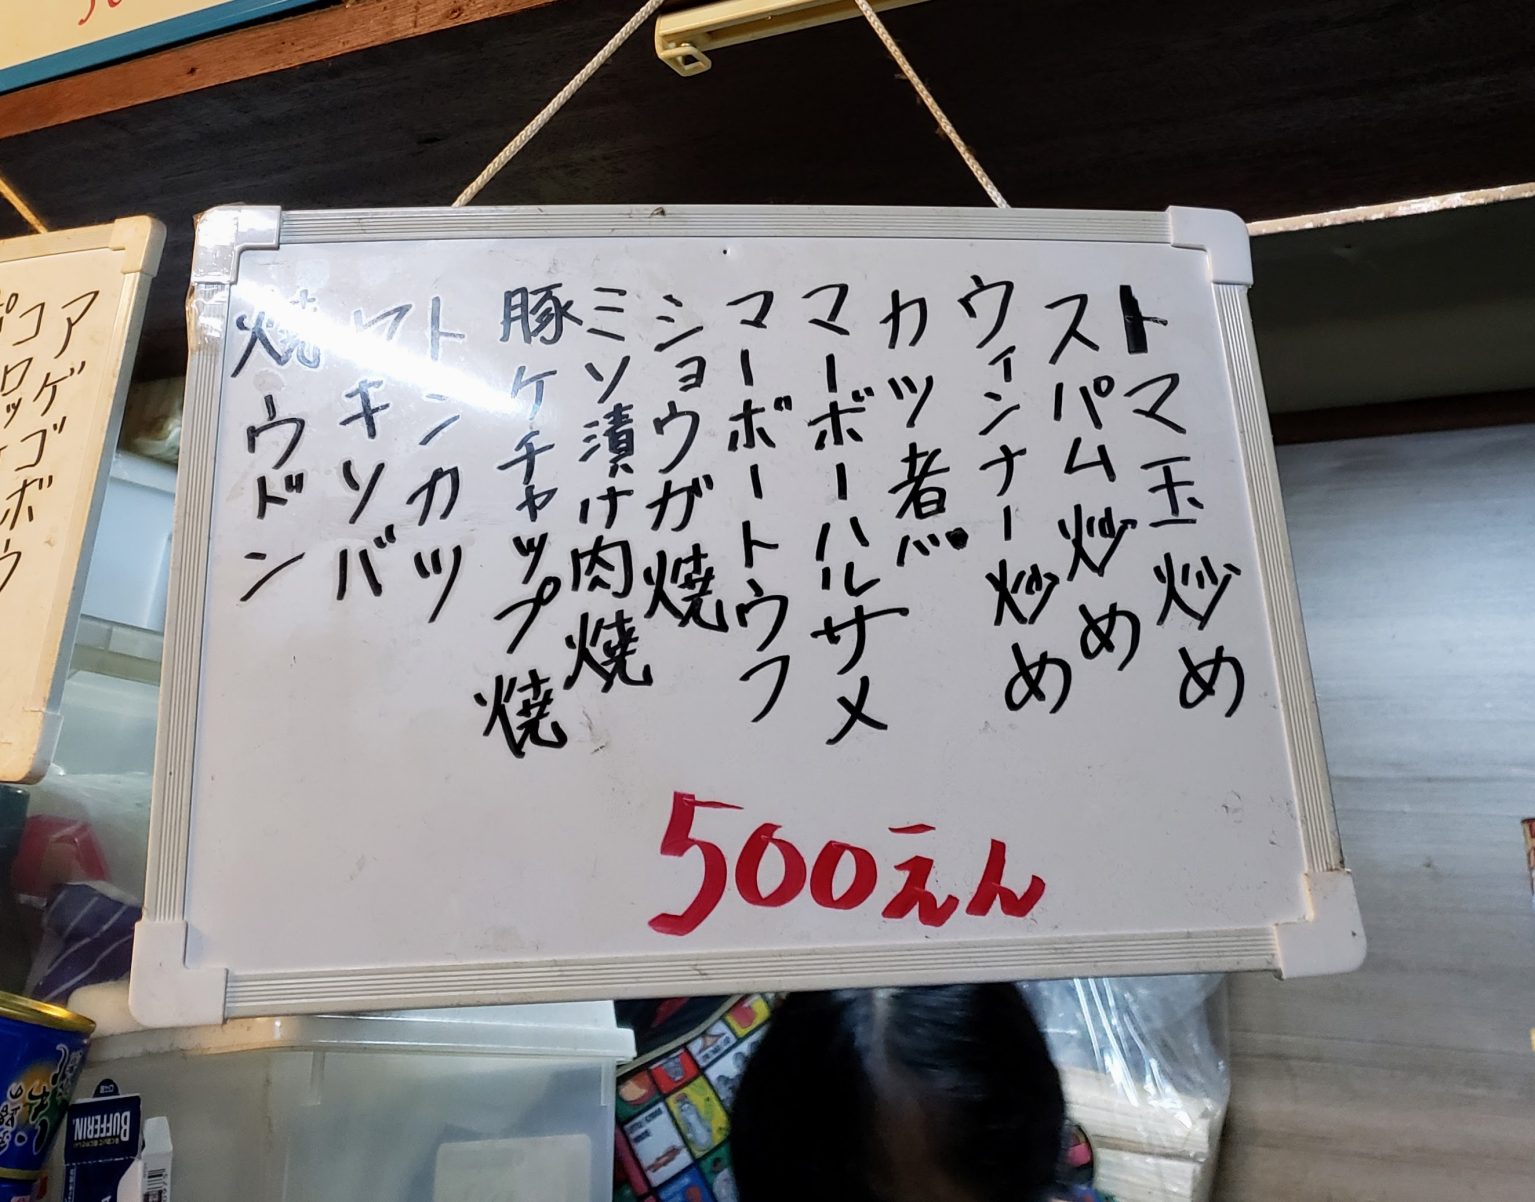 トマ玉炒め
スパム炒め
ウィンナー炒め
カツ煮
マーボーハルサメ
マーボートウフ
ショウガ焼
ミソ漬け肉焼
豚ケチャップ焼
トンカツ
ヤキソバ
焼ウドン
500えん
アゲゴボウ
コロッ
BUFFERIN